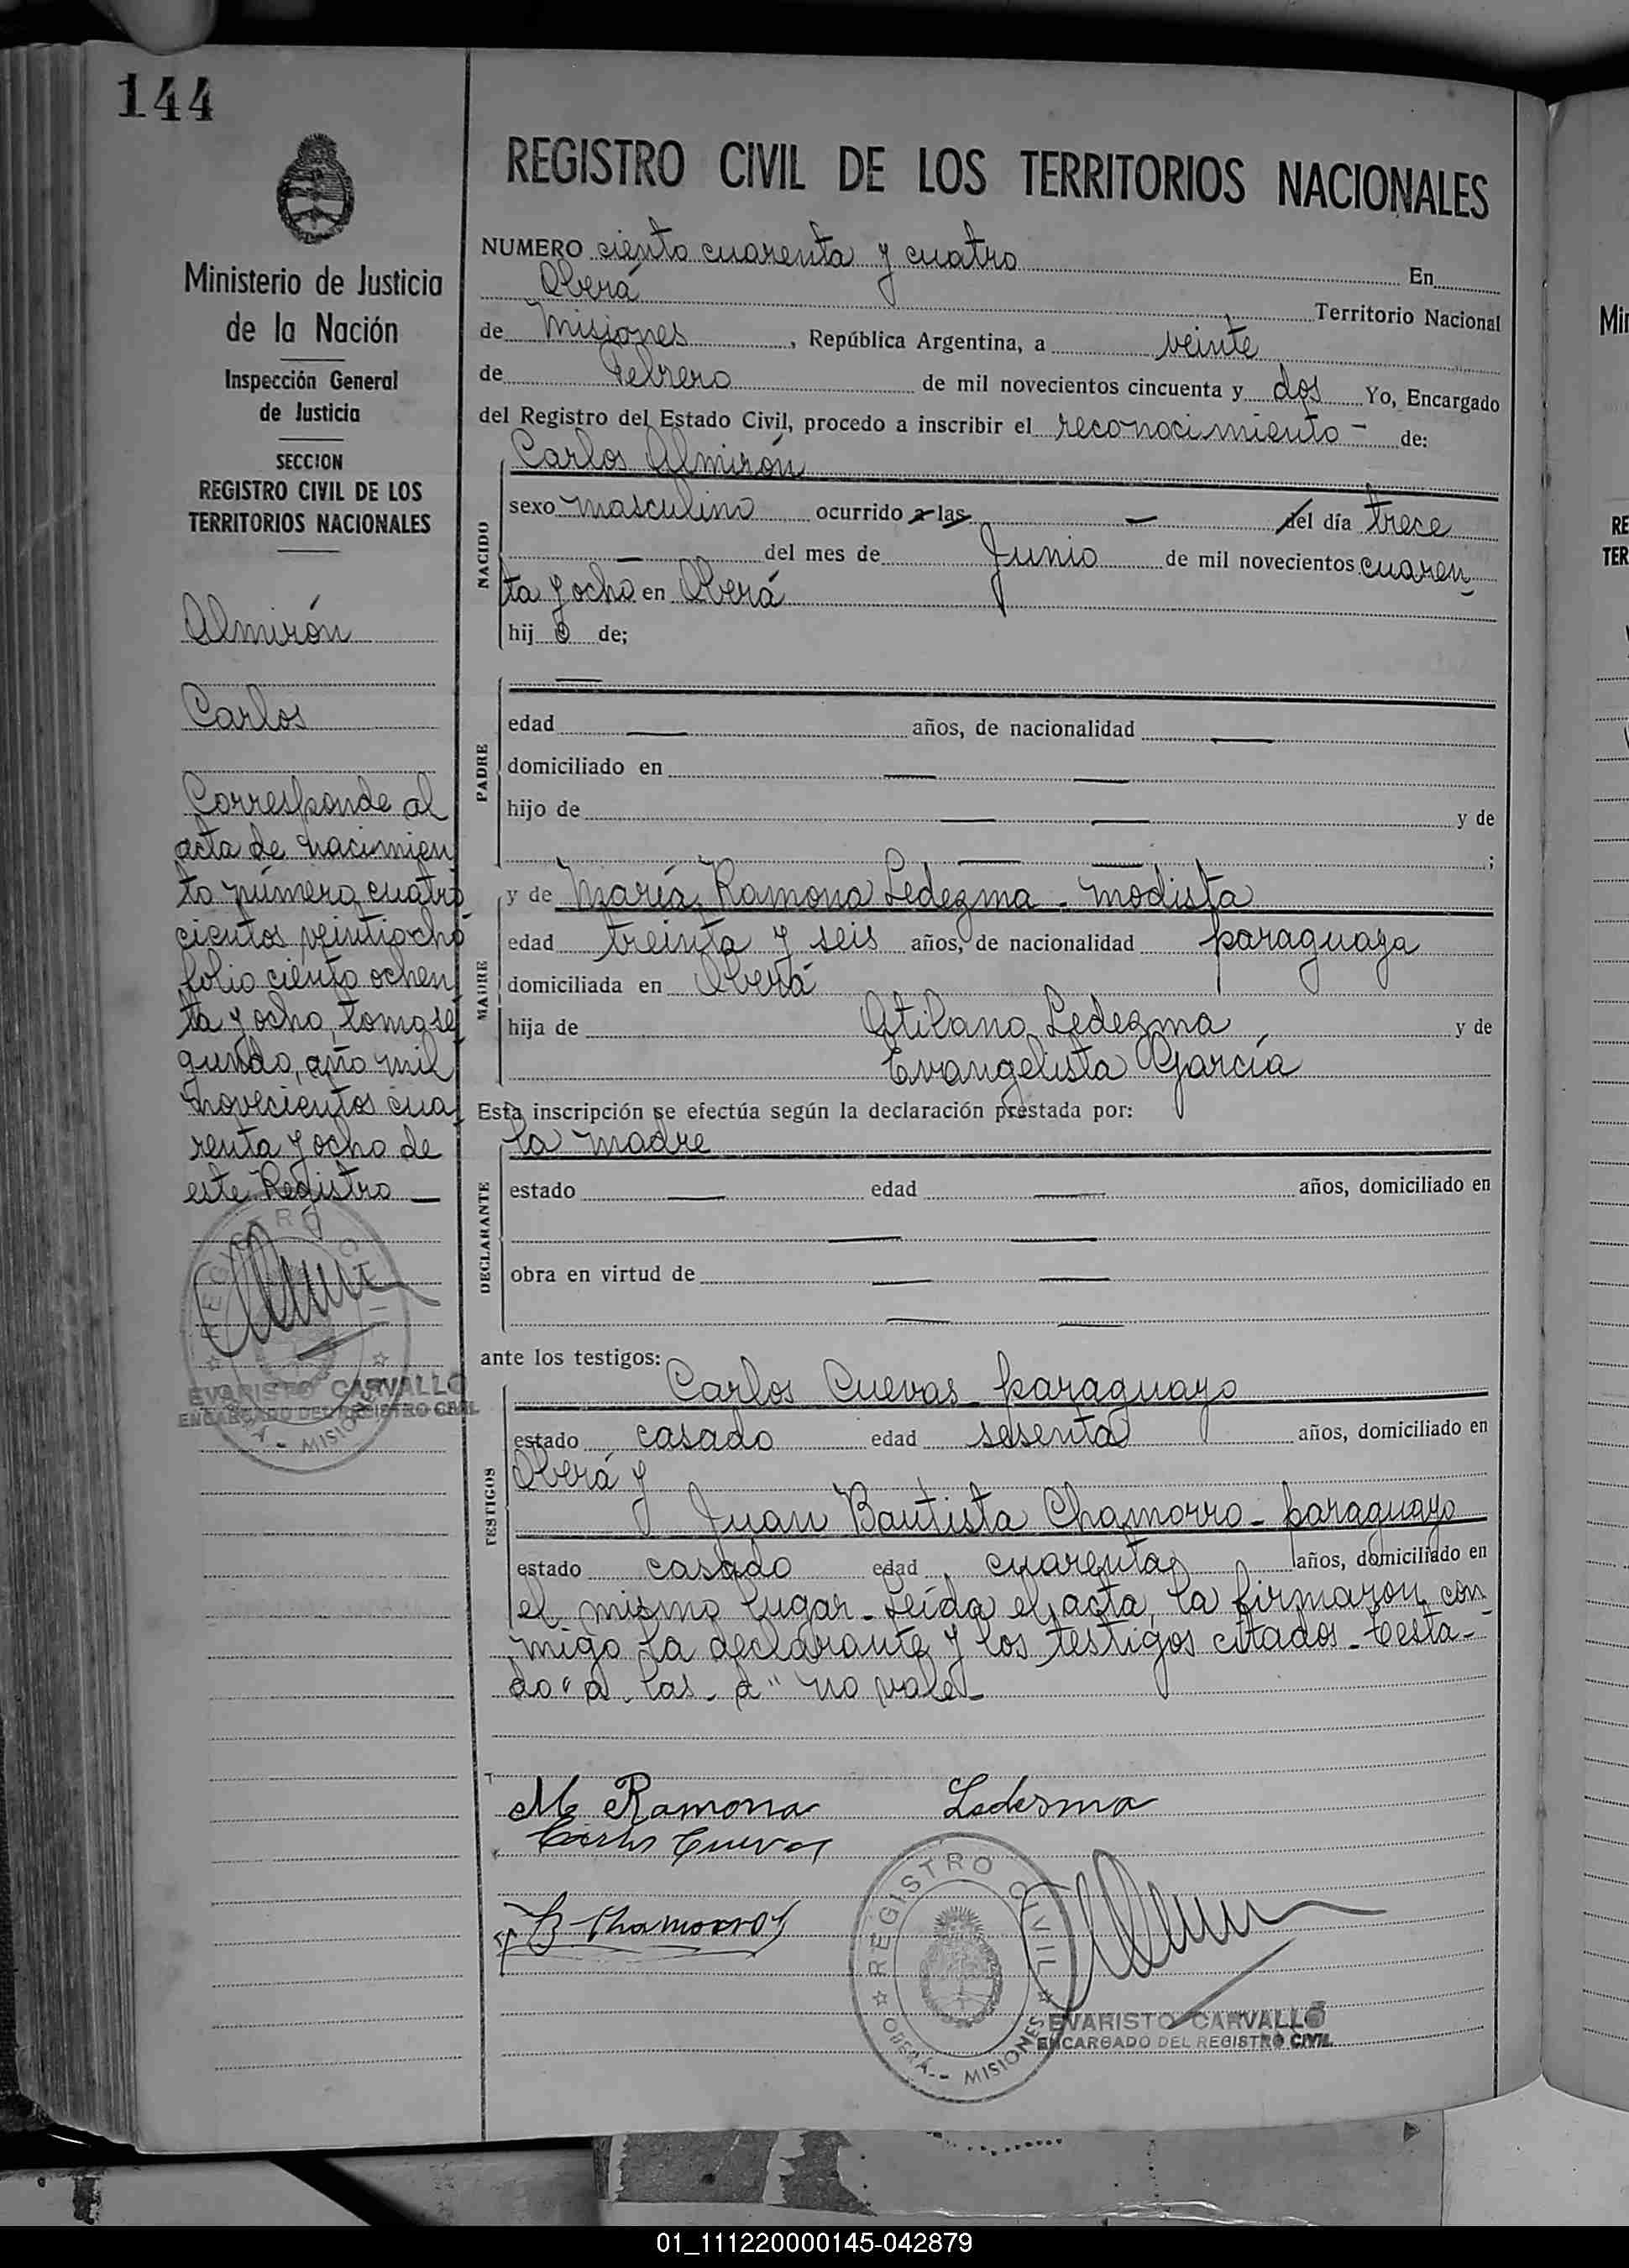 144
REGISTRO CIVIL DE LOS TERRITORIOS NACIONALES
Ministerio de Justicia
de la Nación
Inspección General
de Justicia
SECCION
REGISTRO CIVIL DE LOS
TERRITORIOS NACIONALES
Almirón
Carlos
Corresponde al
acta de nacimien
to número cuatro
cientos veintiocho
folio ciento ochen
ta y ocho, tomo se
gundo, año mil
novecientos cua
renta y ocho de
este Registro —
EVARISTO CARVALLO
ENCARGADO DEL REGISTRO CIVIL
NUMERO ciento cuarenta y cuatro En
Oberá Territorio Nacional
de Misiones, República Argentina, a veinte
de Febrero de mil novecientos cincuenta y dos Yo, Encargado
del Registro del Estado Civil, procedo a inscribir el reconocimiento - de:
NACIDO
Carlos Almirón
sexo masculino ocurrido a las — del día trece
— del mes de Junio de mil novecientos cuaren
ta y ocho en Oberá
hij o de;
PADRE
—
edad — años, de nacionalidad —
domiciliado en — —
hijo de — — y de
— — ;
MADRE
y de María Ramona Ledezma - modista
edad treinta y seis años, de nacionalidad paraguaya
domiciliada en Oberá
hija de Atilano Ledezma y de
Evangelista García
Esta inscripción se efectúa según la declaración prestada por:
DECLARANTE
la madre
estado — edad — años, domiciliado en
— —
obra en virtud de — —
— —
ante los testigos:
TESTIGOS
Carlos Cuevas - paraguayo
estado casado edad sesenta años, domiciliado en
Oberá y
Juan Bautista Chamorro - paraguayo
estado casado edad cuarenta años, domiciliado en
el mismo lugar - Leída el acta, la firmaron con
migo la declarante y los testigos citados - testa-
do "a - las - d" no vale -
M Ramona Ledesma
Carlos Cuevas
J B Chamorro
REGISTRO CIVIL
OBERÁ - MISIONES
EVARISTO CARVALLO
ENCARGADO DEL REGISTRO CIVIL
01_111220000145-042879